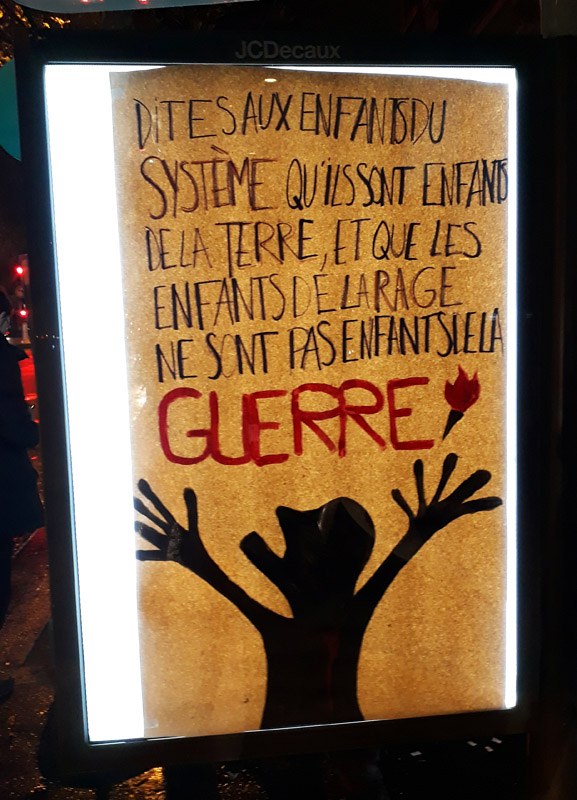 JCDecaux
DITES AUX ENFANTS DU
SYSTÈME QU'ILS SONT ENFANTS
DE LA TERRE, ET QUE LES
ENFANTS DE LA RAGE
NE SONT PAS ENFANTS DE LA
GUERRE!